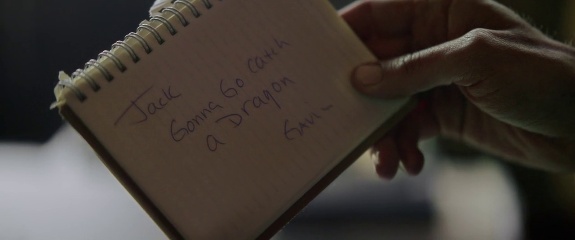 Jack
Gonna Go catch
a Dragon